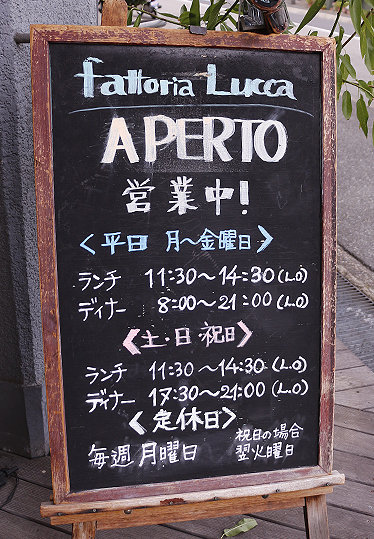 fattoria Lucca
APERTO
営業中!
<平日 月～金曜日>
ランチ 11:30～14:30(L.O)
ディナー 8:00～21:00(L.O)
<土・日・祝日>
ランチ 11:30～14:30(L.O)
ディナー 17:30～21:00(L.O)
<定休日>
毎週月曜日
祝日の場合
翌火曜日